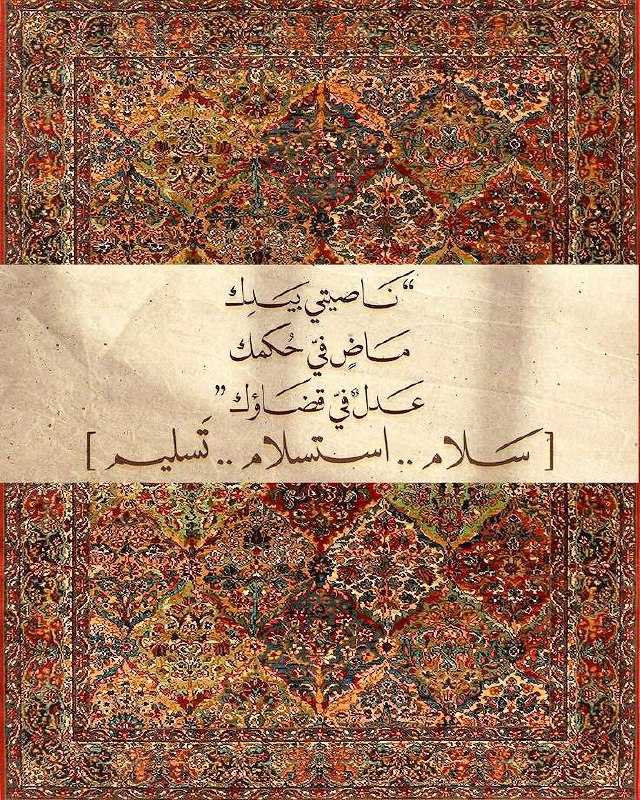 “نَاصيتي بيَـدِك
مَـاضٍ فيّ حُكمك
عَـدلٌ فيّ قضَـاؤك”
[ سَـلام .. استسلام .. تَسليم ]